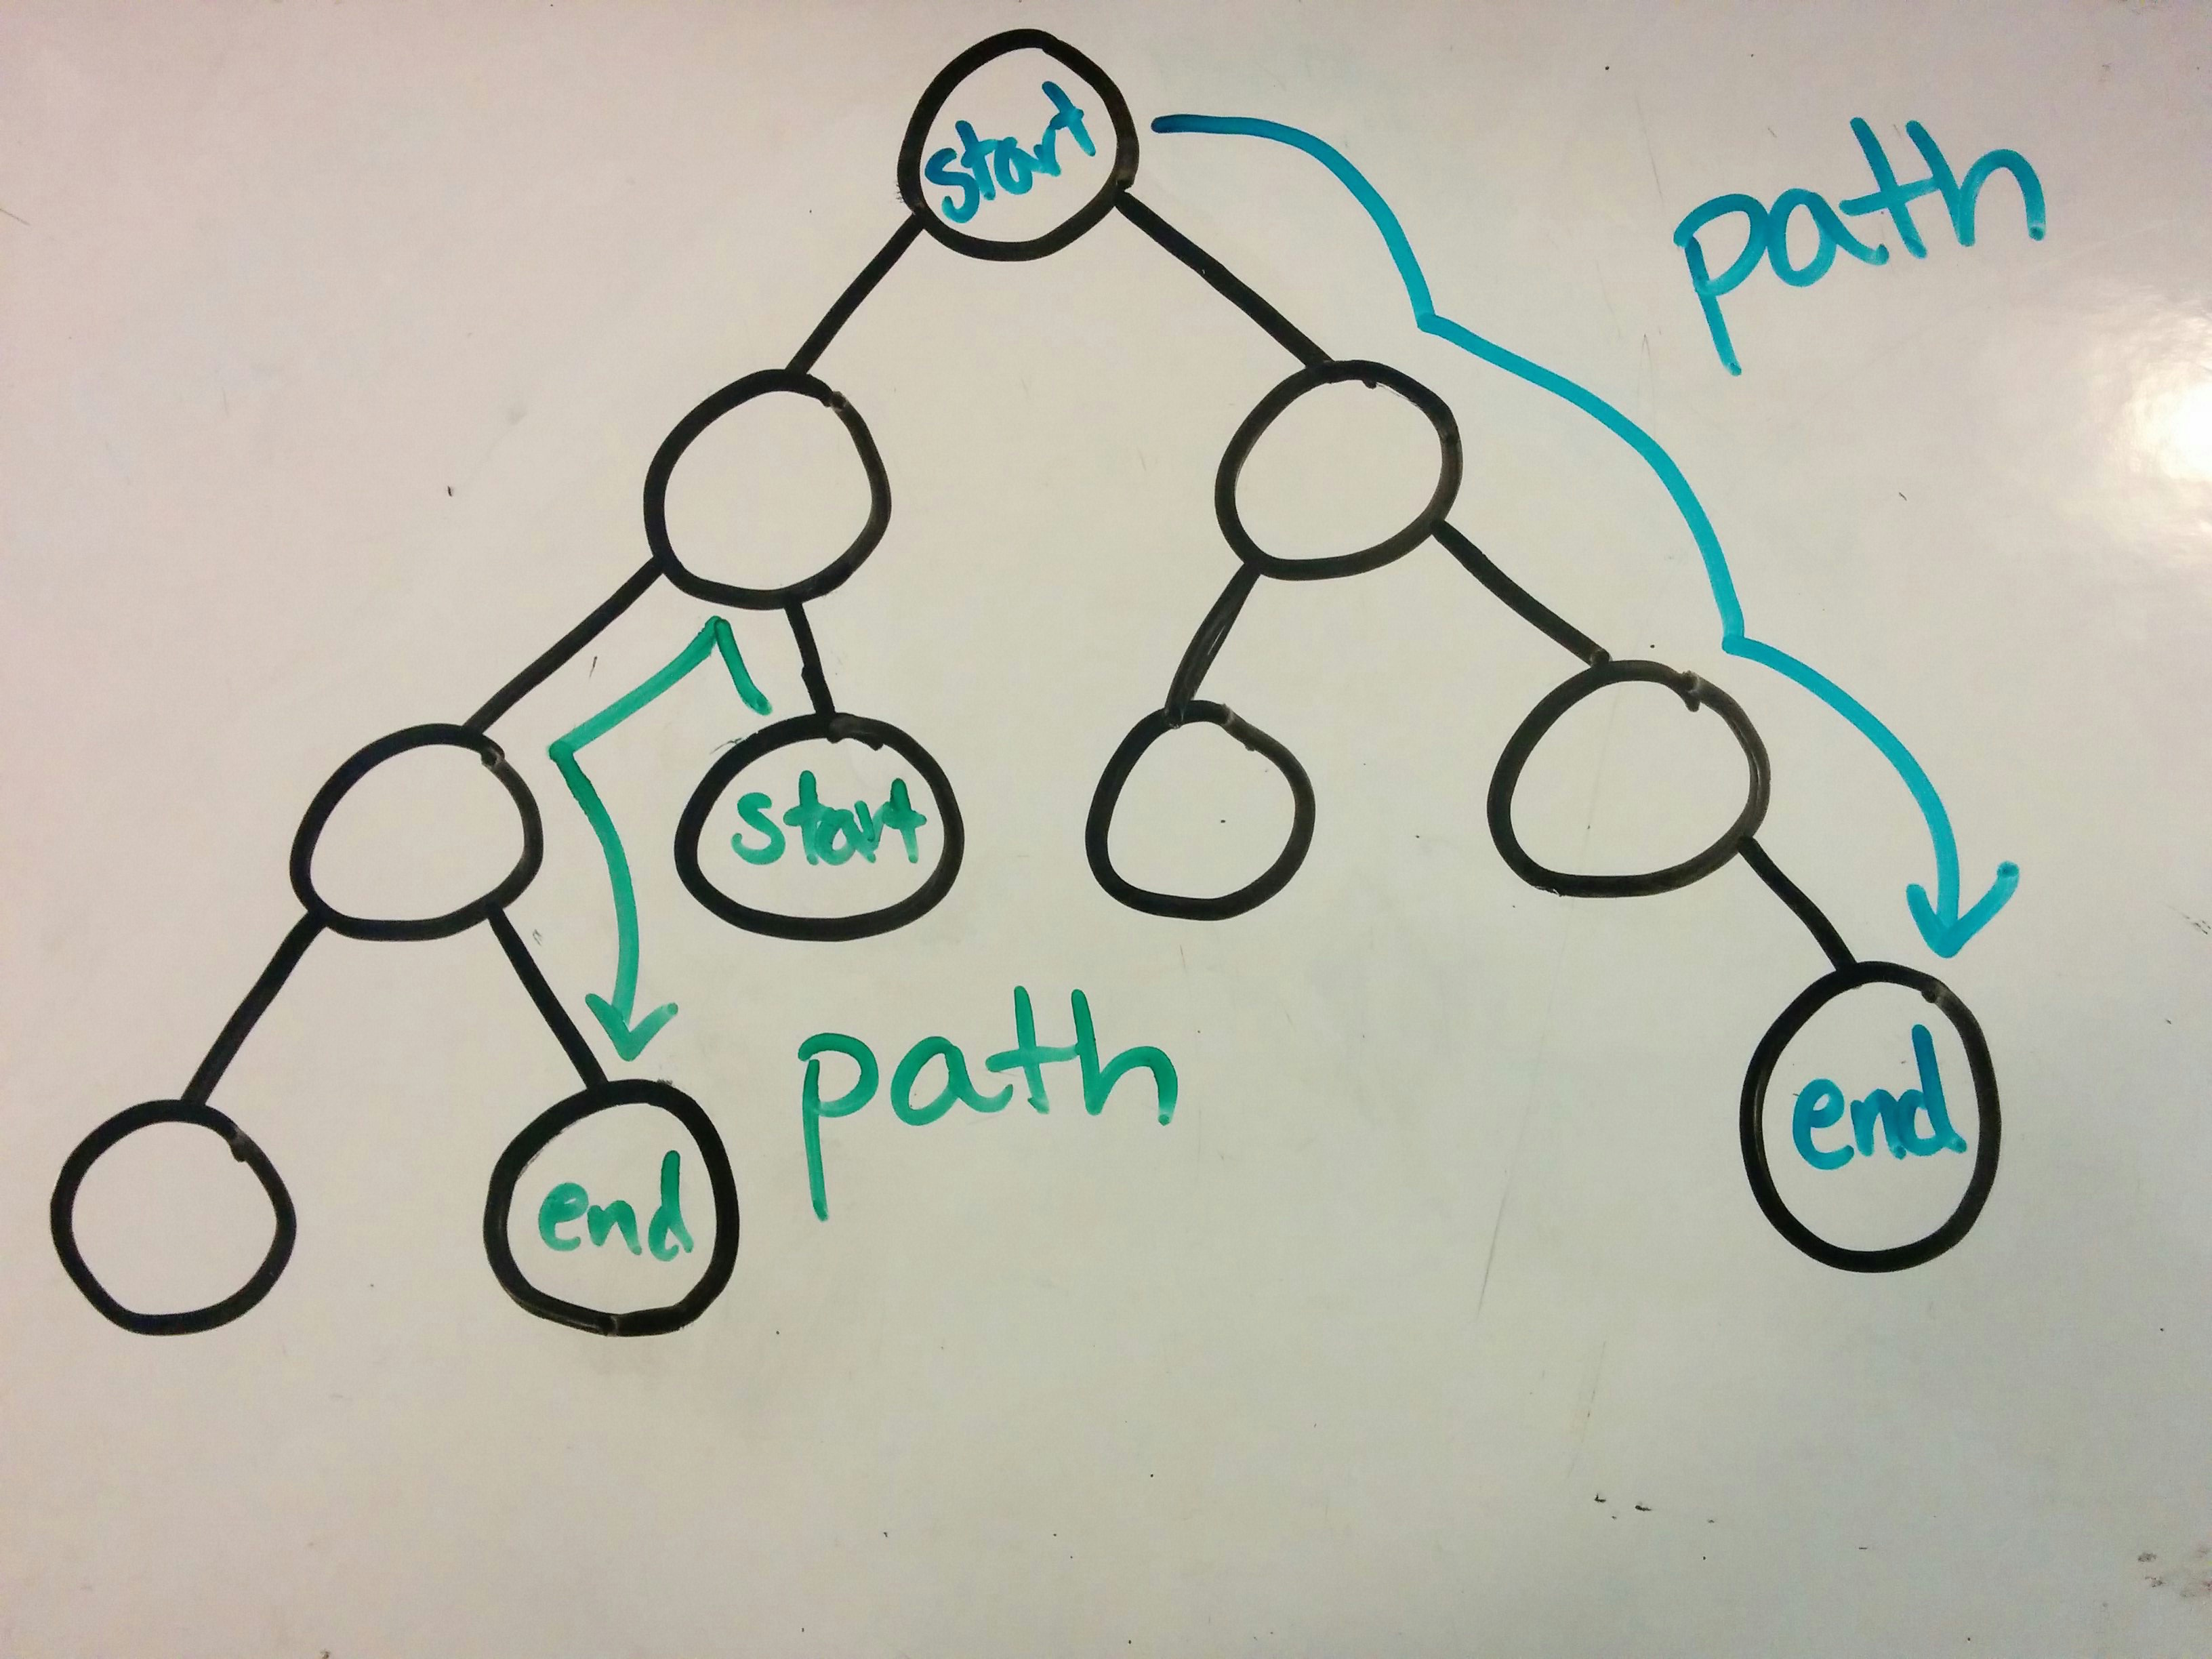 start
path
start
path
end
end